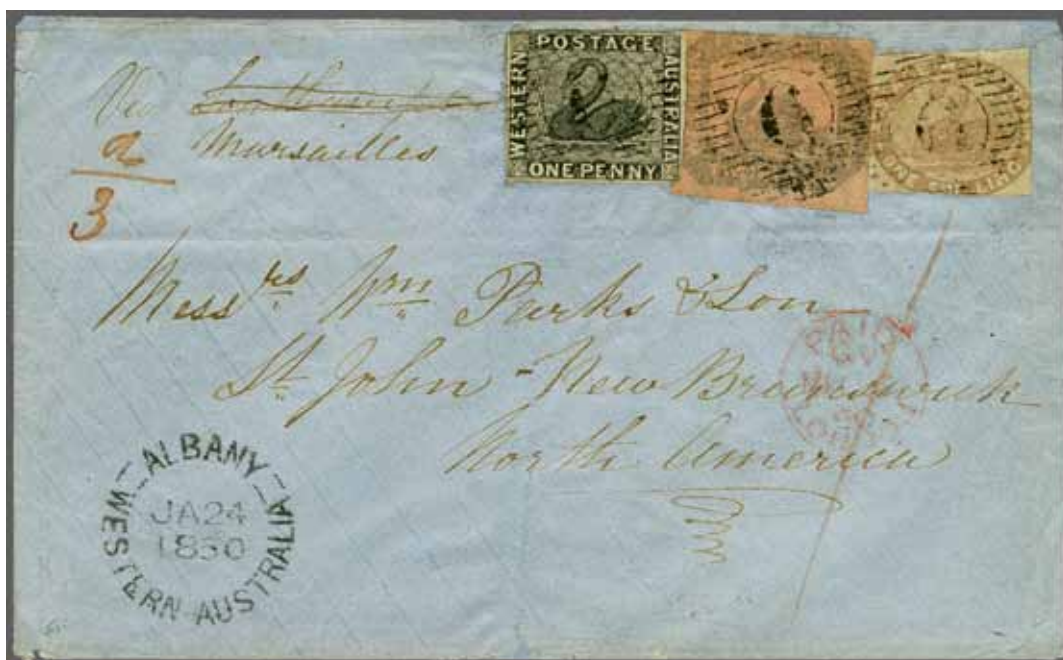 POSTAGE
WESTERN
AUSTRALIA
ONE PENNY
Via
Marsailles
3
Mess rs Wm Parks & Son
St. John - New Brunswick
North America
PAID
ALBANY
JA 24
WESTERN AUSTRALIA